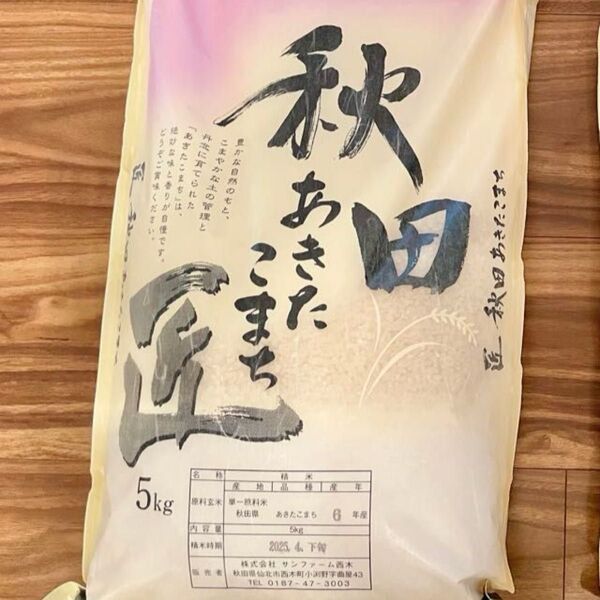 秋田
あきた
こまち
匠
豊かな自然のもと、
こまやかな土の管理と
丹念に育てられた
「あきたこまち」は、
絶妙な味と香りが自慢です。
どうぞご賞味ください。
匠
秋田 あきたこまち 匠
5kg
名称 精米
産地 品種 産年
原料玄米 単一原料米
秋田県 あきたこまち 6年産
内容量 5kg
精米時期 2025.4.下旬
販売者 株式会社 サンファーム西木
秋田県仙北市西木町小渕野字曲屋43
TEL 0187-47-3003